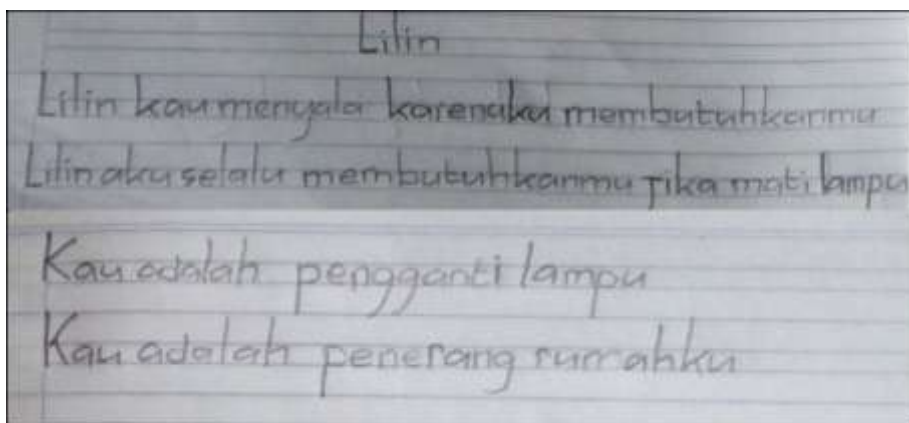 Lilin
Lilin kau menyala karenaku membutuhkanmu
Lilin aku selalu membutuhkanmu jika mati lampu
Kau adalah pengganti lampu
Kau adalah penerang rumahku